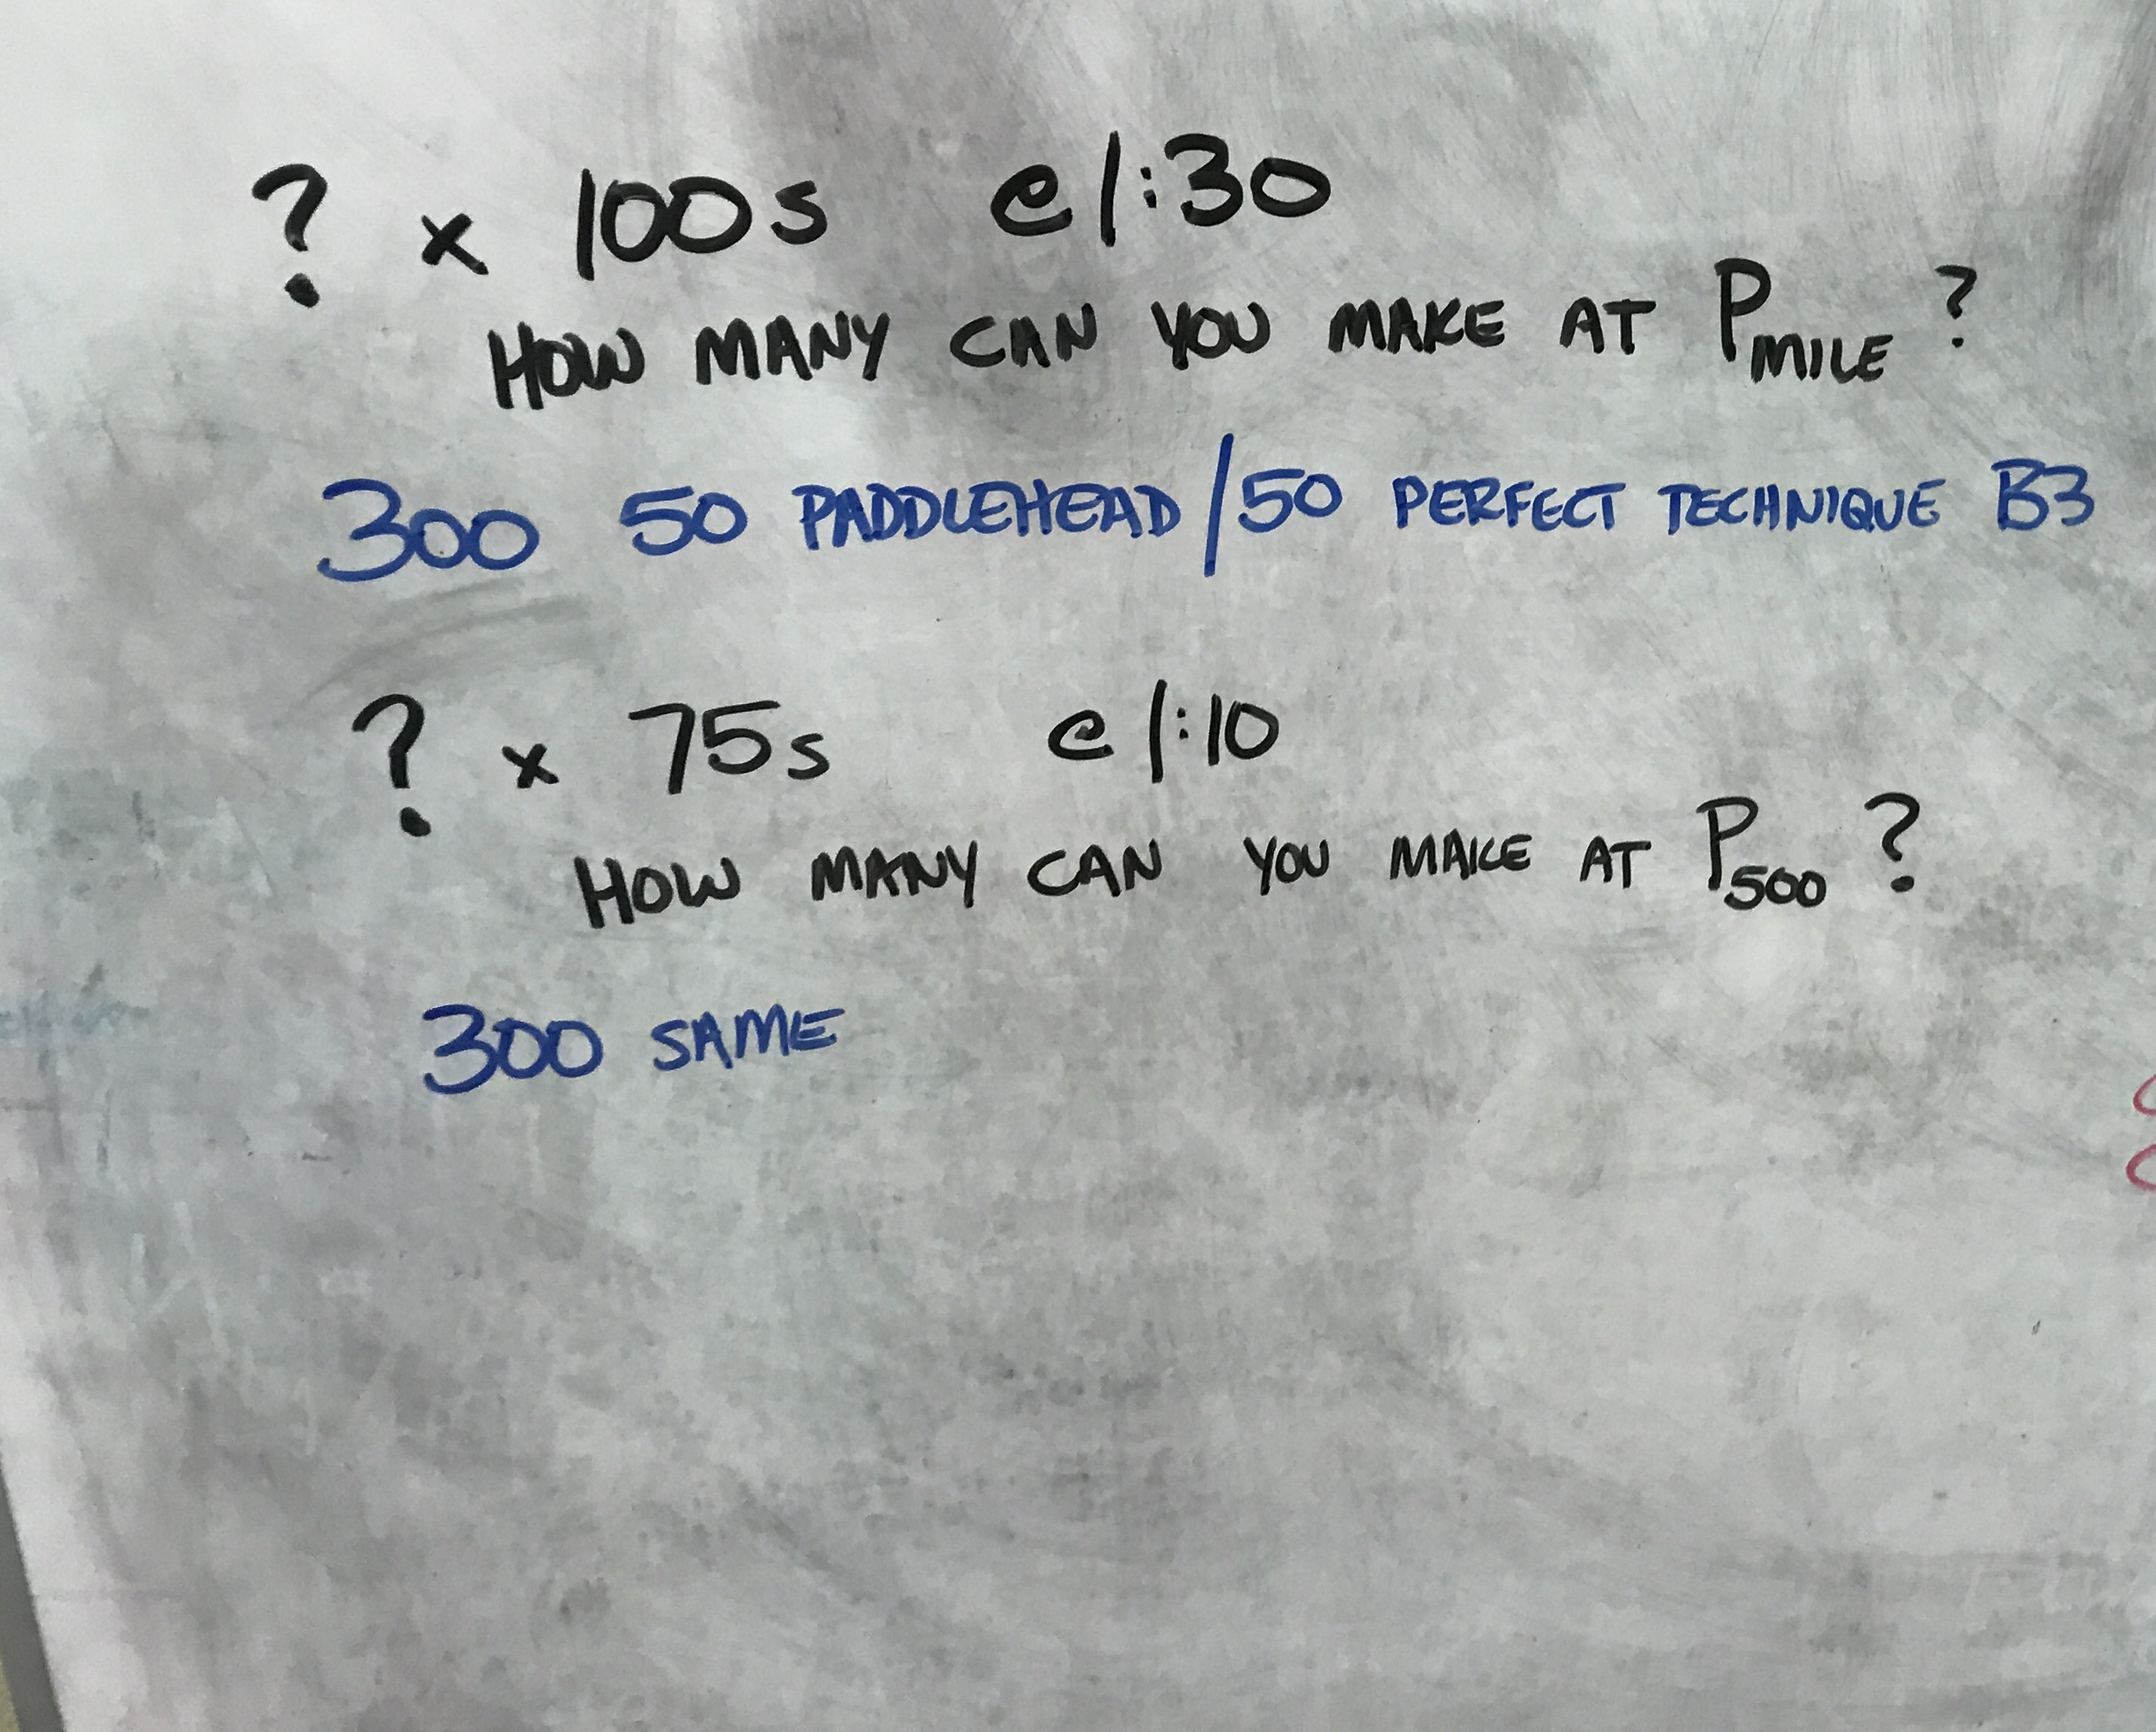 ? x 100s @ 1:30
HOW MANY CAN YOU MAKE AT PMILE ?
300 50 PADDLEHEAD / 50 PERFECT TECHNIQUE B3
? x 75s @ 1:10
HOW MANY CAN YOU MAKE AT P500 ?
300 SAME